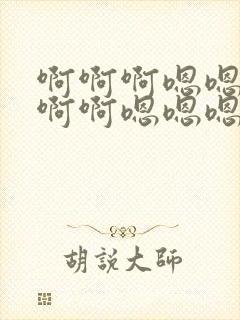 啊啊啊嗯嗯
啊啊嗯嗯嗯
胡說大師